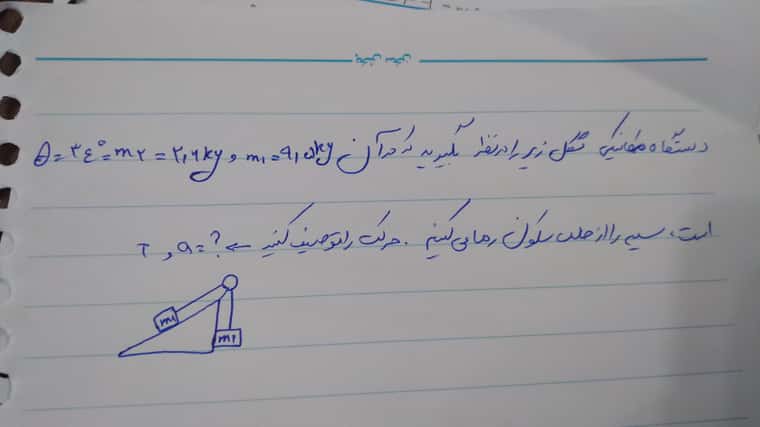 دستگاه مکانیکی شکل زیر را در نظر بگیرید که در آن m₁ = ۹٫۵ kg و m۲ = ۲٫۶ kg = θ = ۳٤°
است، سیستم را از حالت سکون رها می کنیم. حرکت را توصیف کنید ← a = ? و T
m₁
m۲